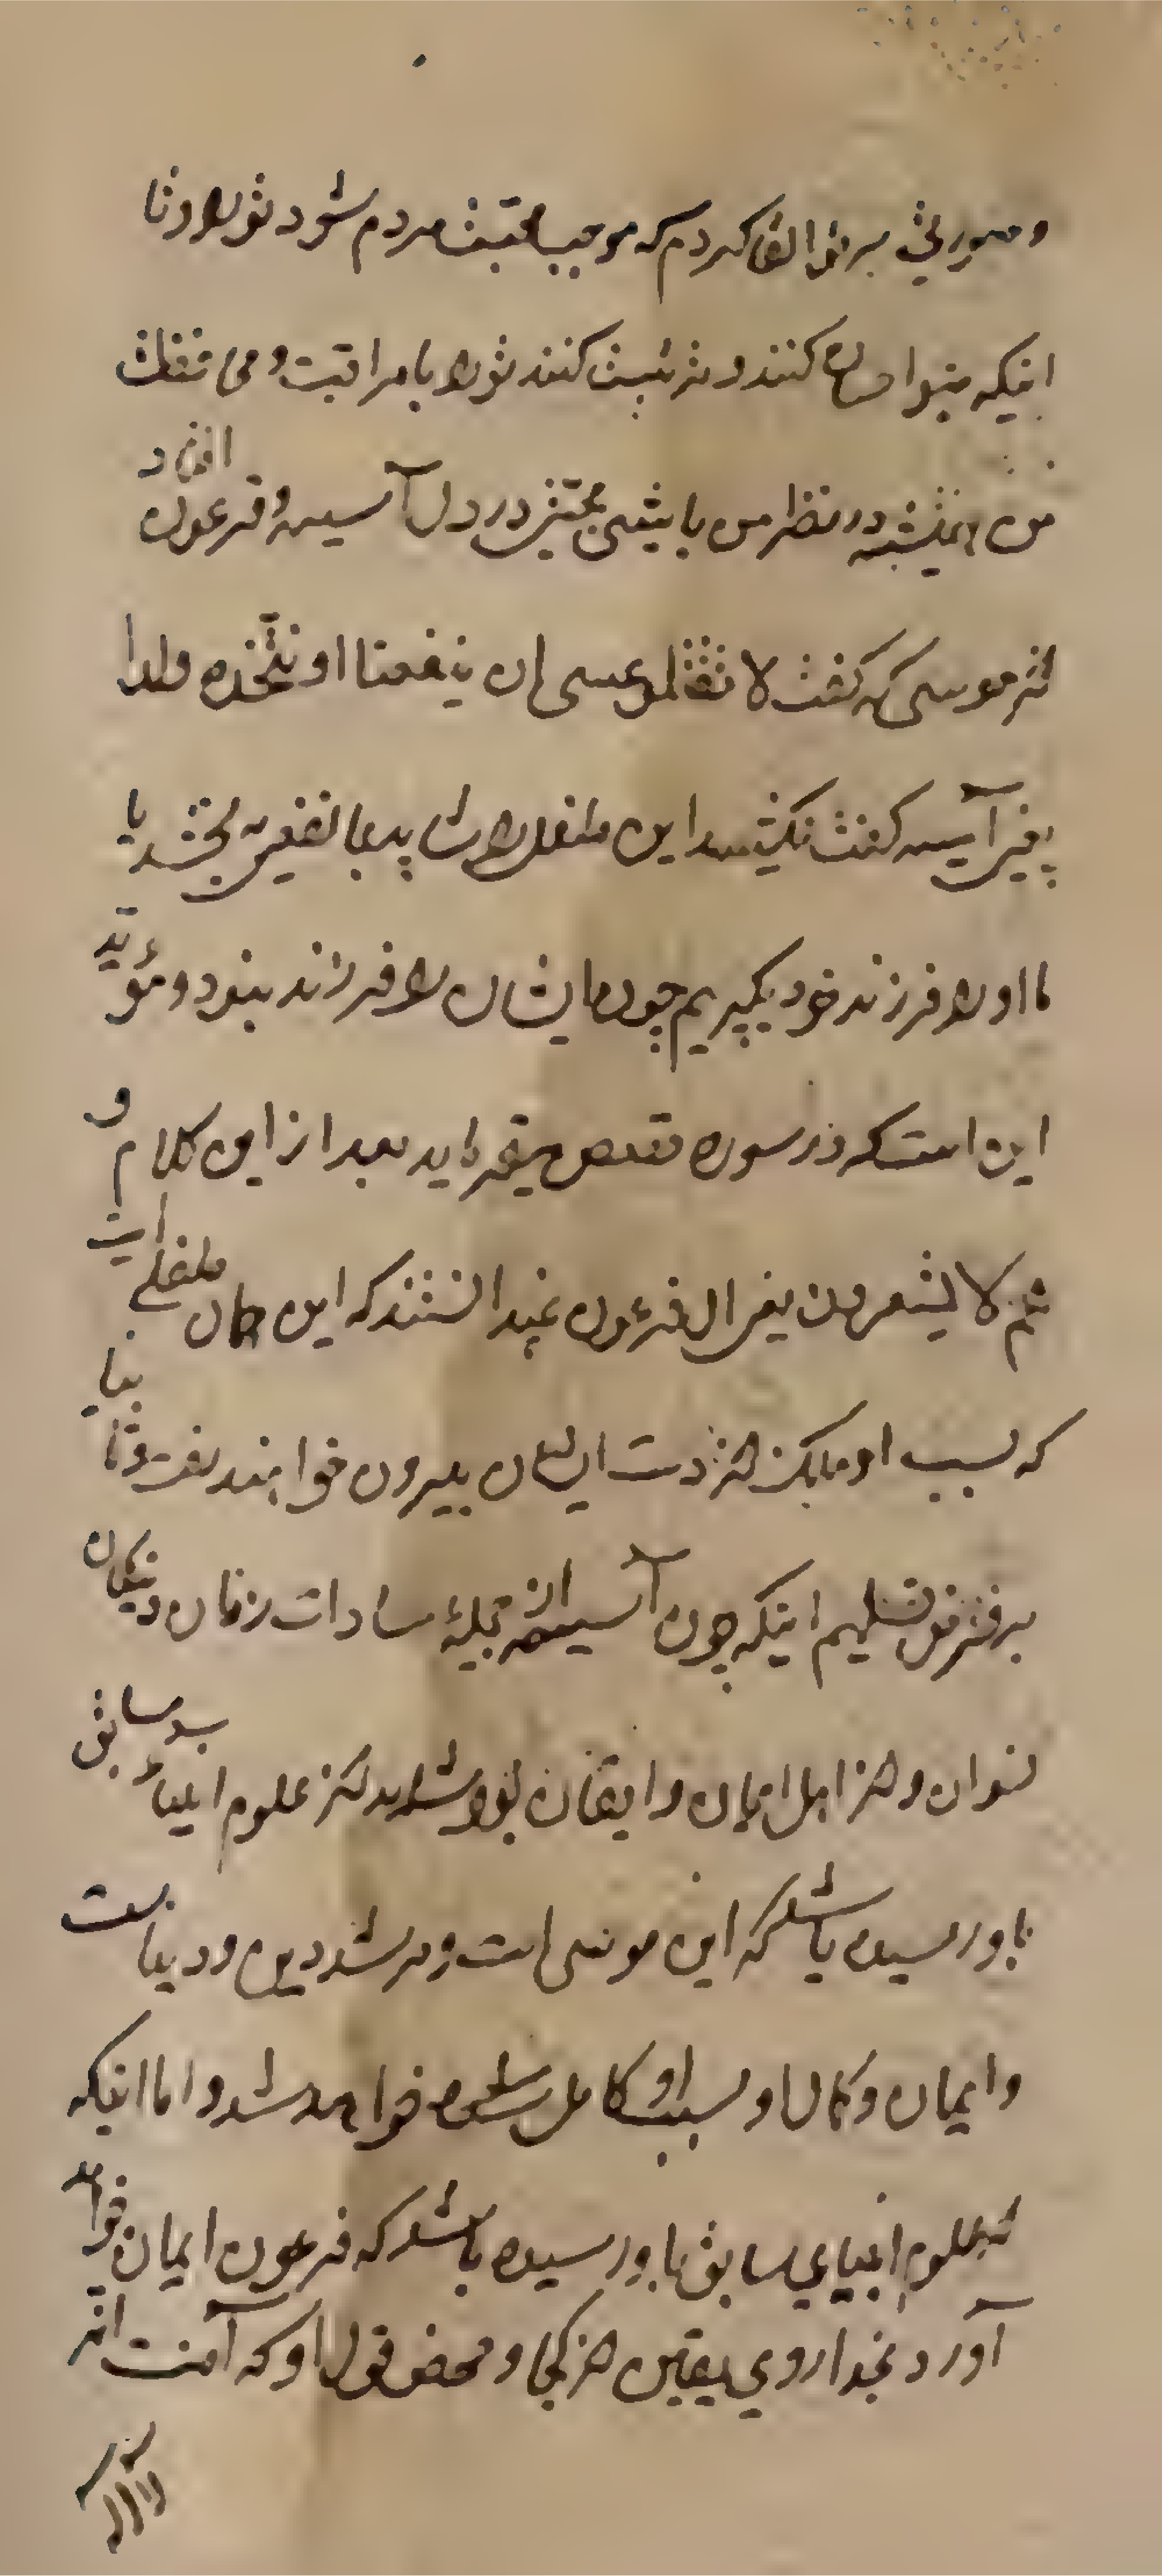 و صورتی بر تو القا کردم که موجب محبت مردم شود تو را و تا
اینکه بتو احسان کنند و تربیت کنند تو را با مراقبت و محافظت
من همیشه در نظر من باشی محبتی در دل آسیه و فرعون افتاد
از موسی که گفت لا تقتلوه عسی ان ینفعنا او نتخذه ولدا
یعنی آسیه گفت نکشید این طفل را شاید بما نفعی بخشد یا
ما او را فرزند خود بگیریم چون ایشان را فرزند نبود و مؤید
این است که در سوره قصص میفرماید بعد از این کلام و
هم لا یشعرون یعنی ال فرعون نمیدانستند که این همان طفلی است
که بسبب او ملک از دست ایشان بیرون خواهد رفت و ثانیا
بر فرض تسلیم اینکه چون آسیه از جملهٔ سادات زنان و نیکان
نسوان و از اهل ایمان و ایقان بود شاید از علوم انبیاء سابق
باو رسیده باشد که این موسی است و مرشد دین و دیانت
و ایمان و کمال او بسبب او کامل خواهد شد و اما اینکه
از علوم انبیای سابق باو رسیده باشد که فرعون ایمان خواهد
آورد بخدا روی یقین از کجا و محض قول او که آمنت انه